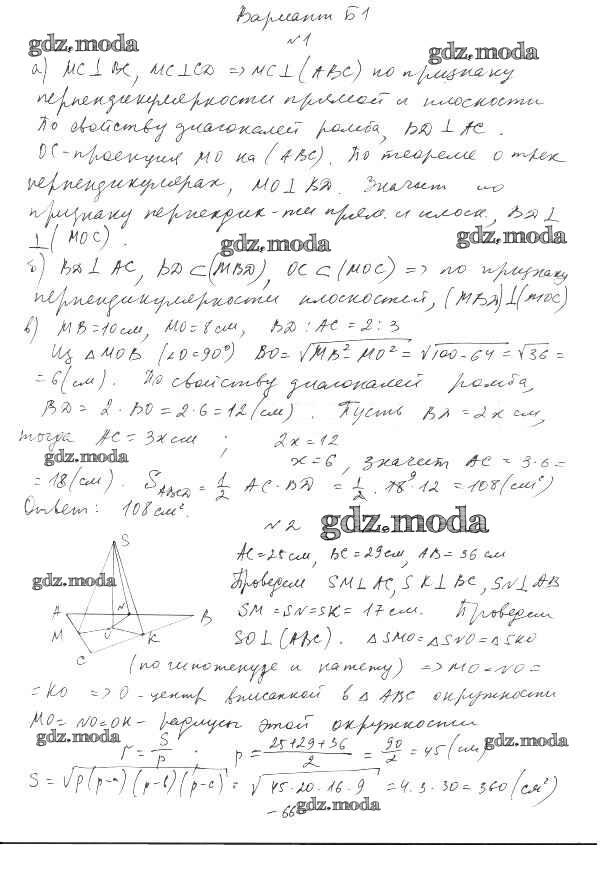 Вариант Б1
№1
gdz.moda gdz.moda
а) MC⊥BC, MC⊥CD => MC⊥(ABC) по признаку
перпендикулярности прямой и плоскости
По свойству диагоналей ромба, BD⊥AC.
OC-проекция MO на (ABC). По теореме о трех
перпендикулярах, MO⊥BD. Значит по
признаку перпендик-ти прям. и плоск., BD⊥
⊥(MOC).
gdz.moda gdz.moda
б) BD⊥AC, BD⊂(MBD), OC⊂(MOC) => по признаку
перпендикулярности плоскостей, (MBD)⊥(MOC)
в) MB=10см, MO=8см, BD:AC=2:3
Из △MOB (∠O=90°) BO=√MB²-MO²=√100-64=√36=
=6(см). По свойству диагоналей ромба,
BD=2·BO=2·6=12(см). Пусть BD=2x см,
тогда AC=3x см; 2x=12
gdz.moda x=6, значит AC=3·6=
=18(см). S ABCD = 1/2 AC·BD = 1/2·18·12 9 =108(см²)
Ответ: 108см².
№2 gdz.moda
AC=25см, BC=29см, AB=36см
gdz.moda Проведем SM⊥AC, SK⊥BC, SN⊥AB
SM=SN=SK=17см. Проведем
SO⊥(ABC). △SMO=△SNO=△SKO
S
A N B
M O K
C
(по гипотенузе и катету) => MO=NO=
=KO => O-центр вписанной в △ABC окружности
MO=NO=OK-радиусы этой окружности
gdz.moda gdz.moda
r=S/p; p=25+29+36/2=90/2=45(см)
S=√p(p-a)(p-b)(p-c)=√45·20·16·9=4·3·30=360(см²)
-66 gdz.moda